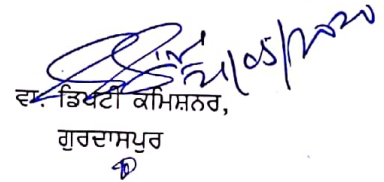 21/05/2020
ਵਾ. ਡਿਪਟੀ ਕਮਿਸ਼ਨਰ,
ਗੁਰਦਾਸਪੁਰ